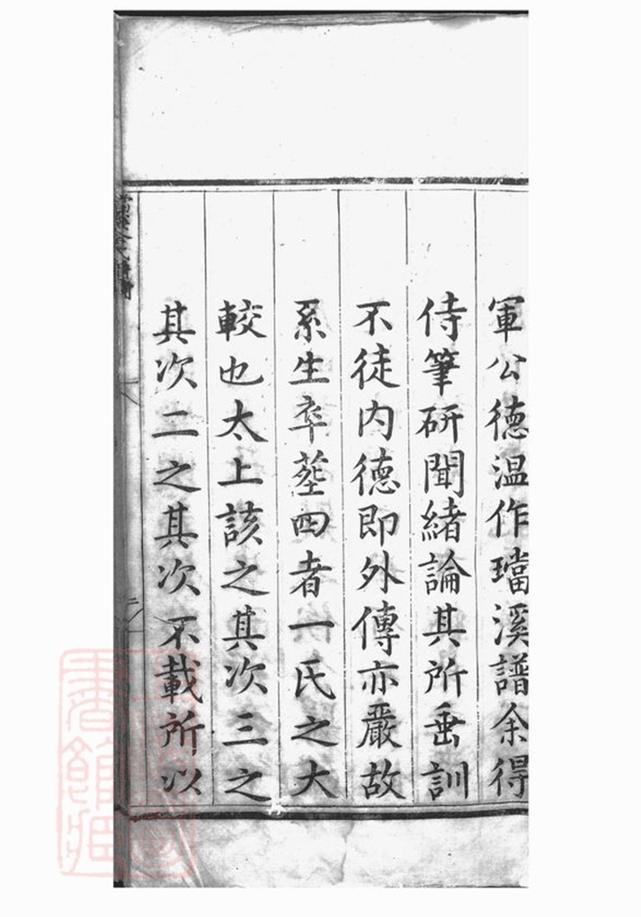 軍公德温作璫溪譜余得
侍筆研聞緒論其所垂訓
不徒内德即外傳亦嚴故
系生卒塟四者一氏之大
較也太上該之其次三之
其次二之其次不載所以
書館藏